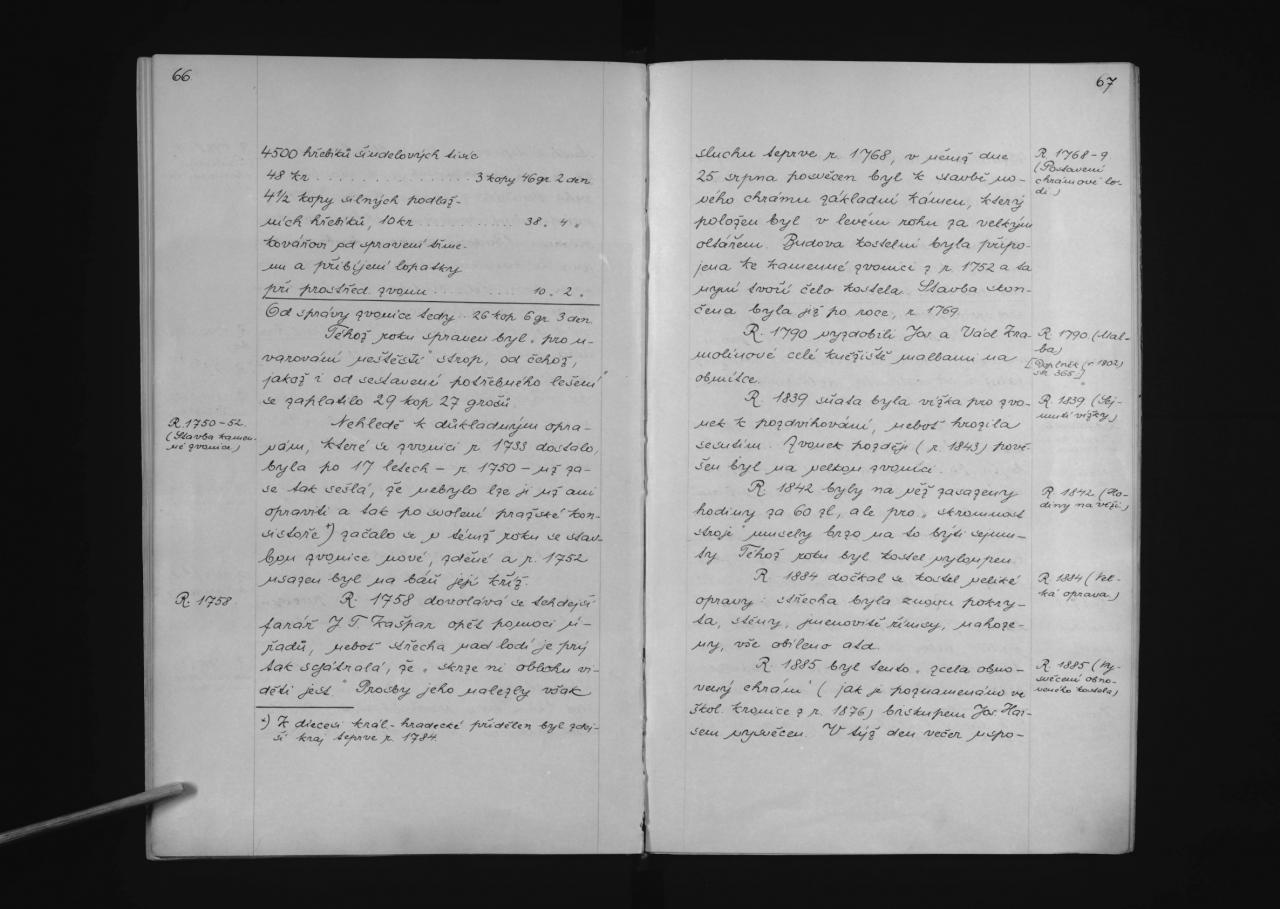 66
4500 hřebíků šindelových tisíc
48 kr ............ 3 kopy 46 gr 2 den.
4½ kopy silných podlaž-
ních hřebíků, 10 kr ............ 38 „ 4 „
Kovářovi od spravení třme-
nu a přibíjení lopatky
při prostřed. zvonu .......... 10 „ 2 „
Od správy zvonice tedy .. 26 kop 6 gr 3 den.
Téhož roku spraven byl „pro u-
varování neštěstí“ strop, od čehož,
jakož i od sestavení „potřebného lešení“
se zaplatilo 29 kop 27 grošů.
R. 1750-52.
(Stavba kamen-
né zvonice)
Nehledě k důkladným opra-
vám, které se zvonici r. 1733 dostalo,
byla po 17 letech – r. 1750 – už za-
se tak sešlá, že nebylo lze ji už ani
opraviti a tak po svolení pražské kon-
sistoře*) začalo se v témž roku se stav-
bou zvonice nové, zděné a r. 1752
vsazen byl na báň její kříž.
R. 1758.
R. 1758 dovolává se tehdejší
farář J. T. Kašpar opět pomoci ú-
řadů, neboť střecha nad lodí je prý
tak sešátralá, že „skrze ni oblohu vi-
děti jest.“ Prosby jeho nalezly však
*) K diecesi král-hradecké přidělen byl zdej-
ší kraj teprve r. 1784.
67
sluchu teprve r. 1768, v němž dne
25. srpna posvěcen byl k stavbě no-
vého chrámu základní kámen, který
položen byl v levém rohu za velkým
oltářem. Budova kostelní byla připo-
jena ke kamenné zvonici z r. 1752 a ta
nyní tvoří čelo kostela. Stavba skon-
čena byla již po roce, r. 1769.
R. 1768-9
(Postavení
chrámové lo-
di)
R. 1790 vyzdobili Jos. a Václ. Kra-
molínové celé kněžiště malbami na
omítce.
R. 1790 (Mal-
ba)
[Doplněk (r. 1802)
str. 365]
R. 1839 sňata byla vížka pro zvo-
nek k pozdvihování, neboť hrozila
sesutím. Zvonek později (r. 1843) pově-
šen byl na velkou zvonici.
R. 1839 (Sej-
mutí vížky)
R. 1842 byly na věž zasazeny
hodiny za 60 zl, ale pro „skromnost
stroje“ musely brzo na to býti sejmu-
ty. Téhož roku byl kostel vyloupen.
R. 1842 (Ho-
diny na věži)
R. 1884 dočkal se kostel veliké
opravy: střecha byla znovu pokry-
ta, stěny, jmenovitě římsy, nahoze-
ny, vše obíleno atd.
R. 1884 (Vel-
ká oprava)
R. 1885 byl tento „zcela obno-
vený chrám“ (jak je poznamenáno ve
škol. kronice z r. 1876) biskupem Jos. Hai-
sem vysvěcen. V týž den večer uspo-
R. 1885 (Vy-
svěcení obno-
veného kostela)